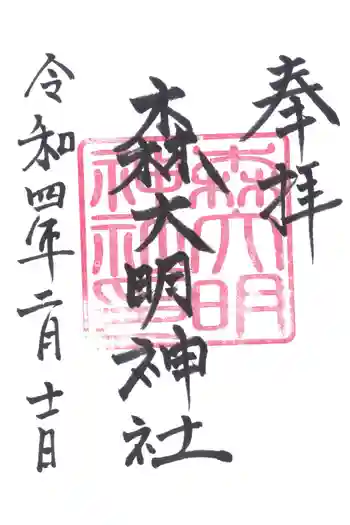 奉拝
森大明神社
令和四年二月十一日
森大明
神社